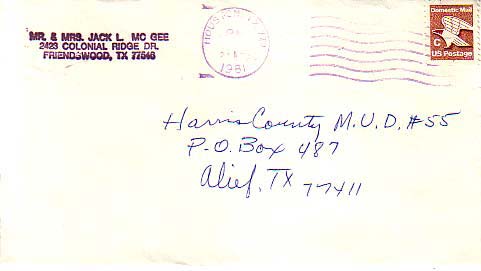 MR. & MRS. JACK L. MC GEE
2423 COLONIAL RIDGE DR.
FRIENDSWOOD, TX 77546
HOUSTON, TX
PM
1981
Domestic Mail
C
US Postage
Harris County M.U.D. #55
P.O. Box 487
Alief, TX 77411